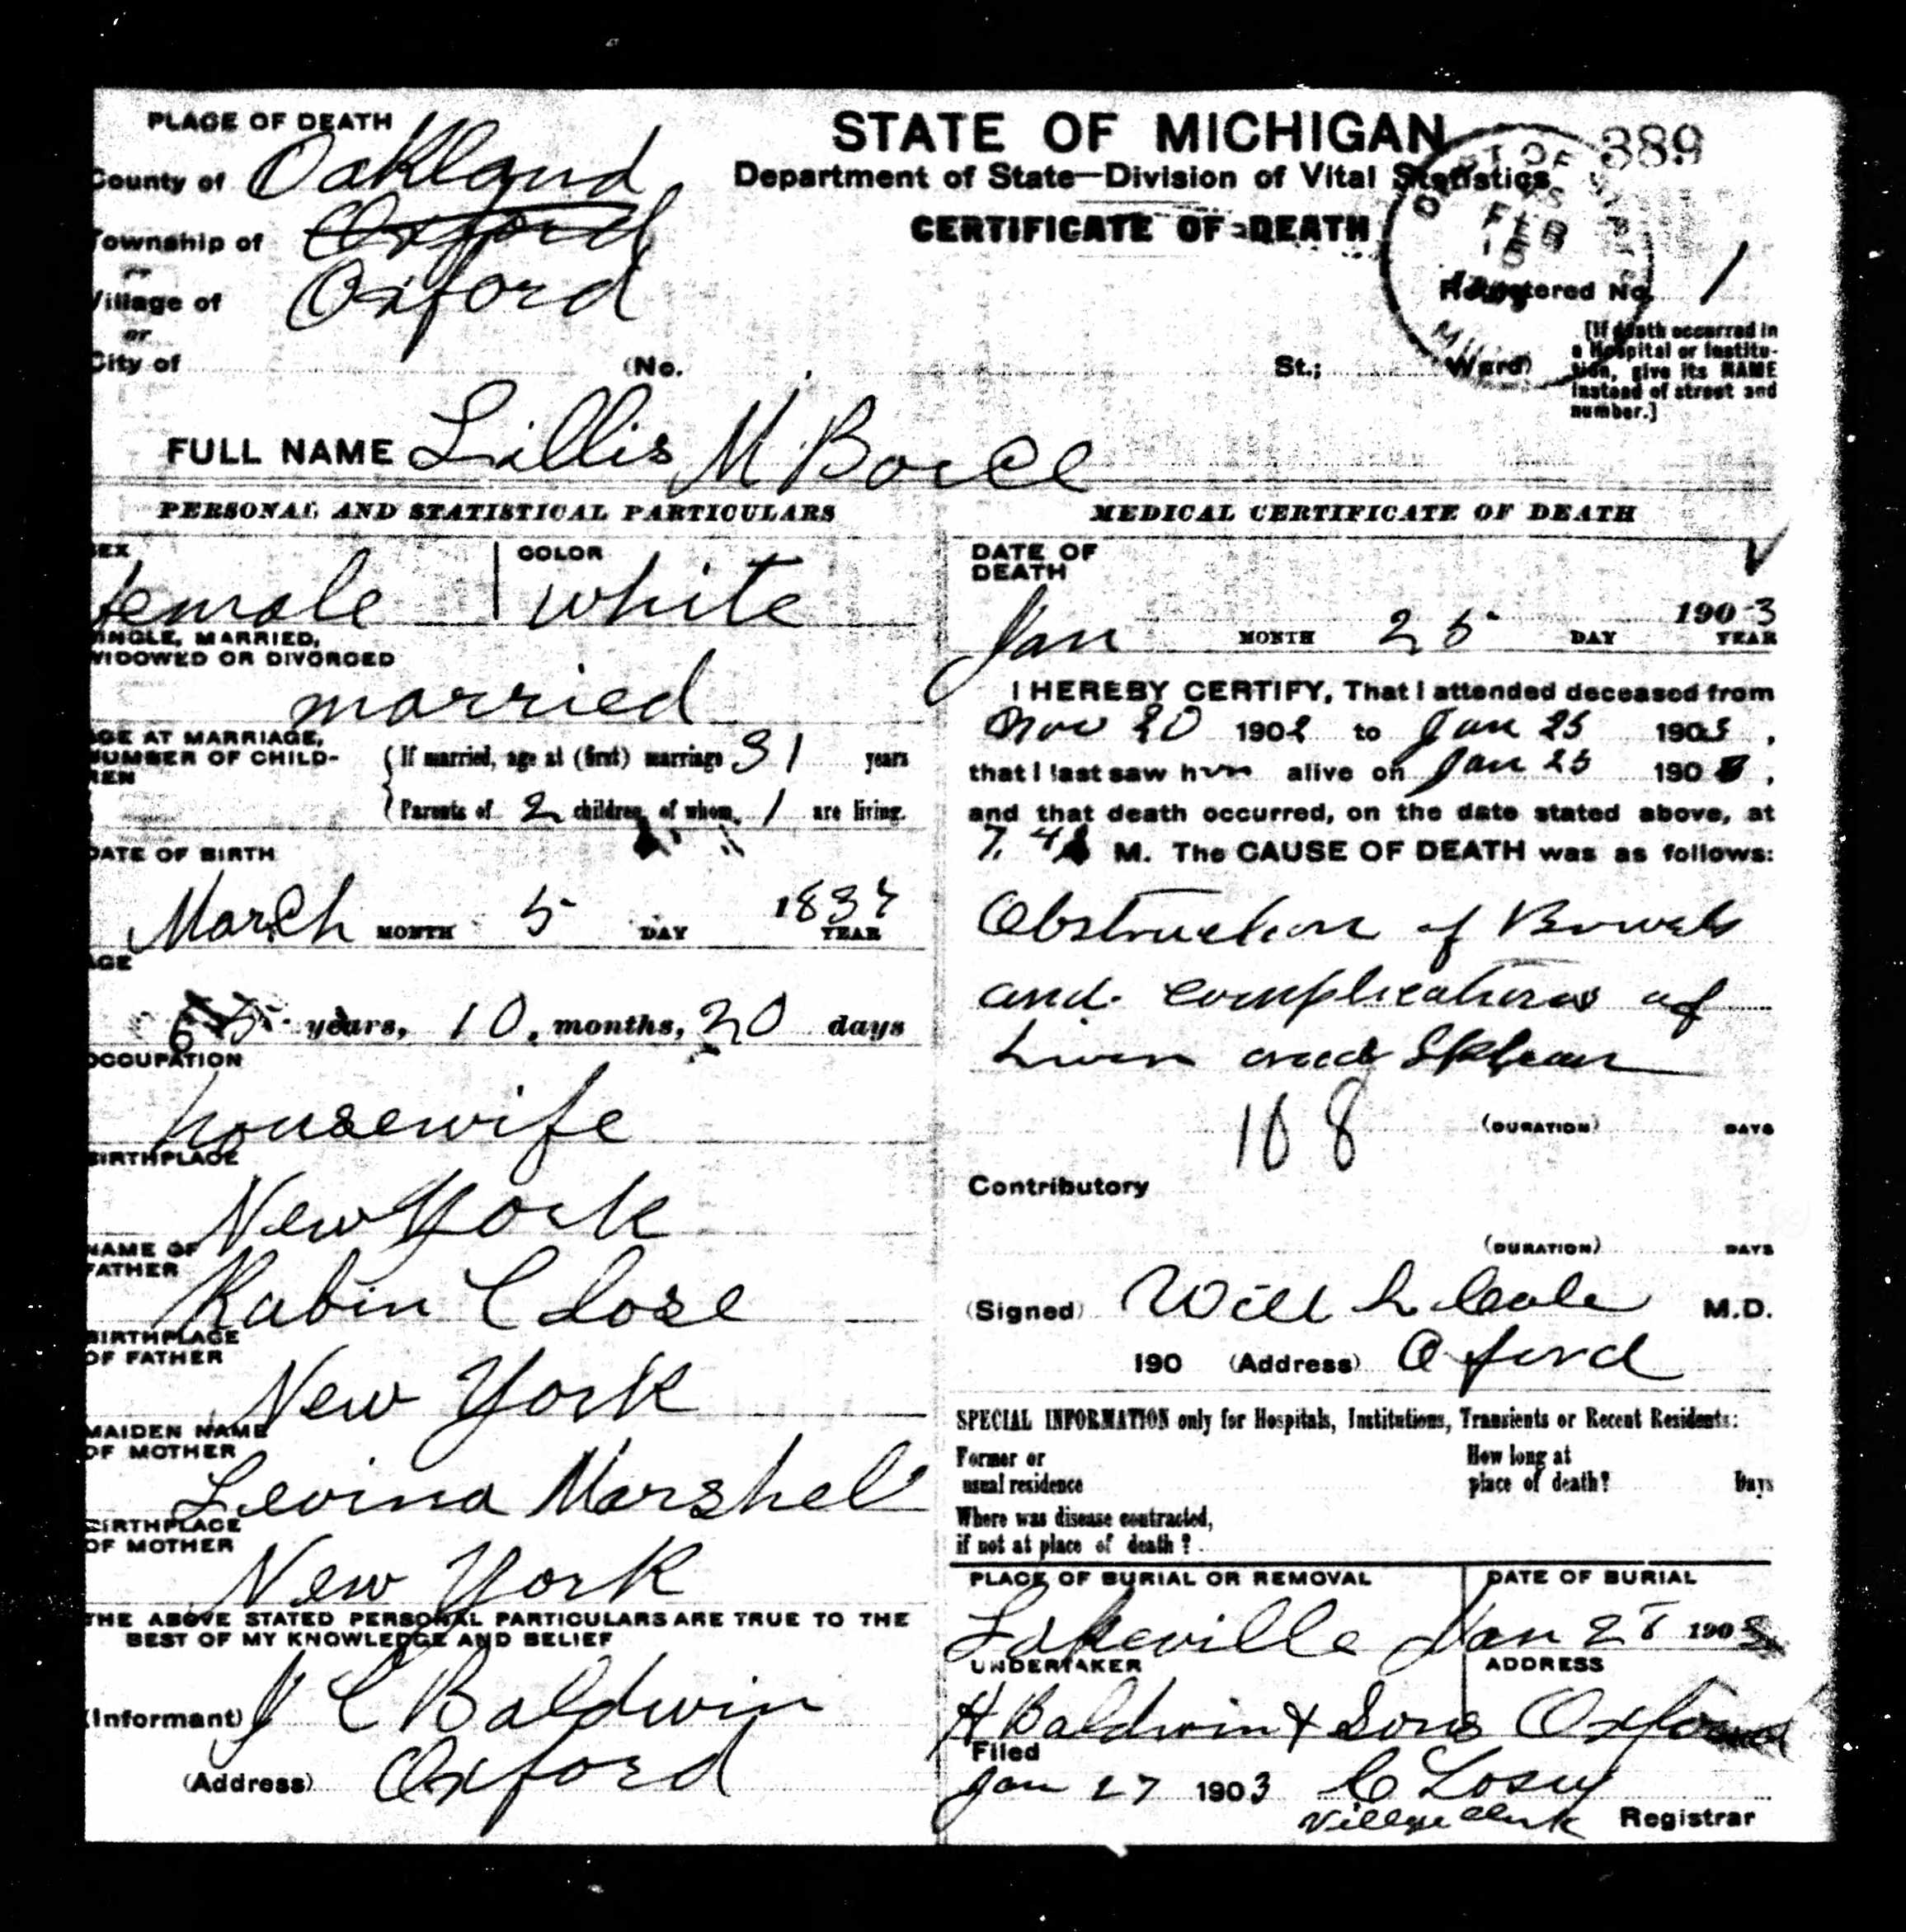 PLACE OF DEATH
County of Oakland
Township of Oxford
or
Village of Oxford
or
City of (No. St.; Ward)
STATE OF MICHIGAN
Department of State—Division of Vital Statistics
CERTIFICATE OF DEATH
389
FEB
Registered No. 1
[If death occurred in
a Hospital or Institu-
tion, give its NAME
instead of street and
number.]
FULL NAME Lillis M Boice
PERSONAL AND STATISTICAL PARTICULARS
SEX
female
COLOR
white
SINGLE, MARRIED,
WIDOWED OR DIVORCED
married
AGE AT MARRIAGE,
NUMBER OF CHILD-
REN
(If married, age at (first) marriage 31 years
Parents of 2 children, of whom 1 are living.
DATE OF BIRTH
March MONTH 5 DAY YEAR
AGE
years, 10 months, 20 days
OCCUPATION
housewife
BIRTHPLACE
New York
NAME OF
FATHER
Rabin Close
BIRTHPLACE
OF FATHER
New York
MAIDEN NAME
OF MOTHER
Levina Marshel
BIRTHPLACE
OF MOTHER
New York
THE ABOVE STATED PERSONAL PARTICULARS ARE TRUE TO THE
BEST OF MY KNOWLEDGE AND BELIEF
(Informant) J C Baldwin
(Address) Oxford
MEDICAL CERTIFICATE OF DEATH
DATE OF
DEATH
Jan MONTH 25 DAY 1903 YEAR
I HEREBY CERTIFY, That I attended deceased from
Nov 20 1902 to Jan 25 1903,
that I last saw her alive on Jan 25 1903,
and that death occurred, on the date stated above, at
M. The CAUSE OF DEATH was as follows:
Obstruction of Bowels
and complications of
Liver and Spleen
108 (DURATION) DAYS
Contributory
(DURATION) DAYS
(Signed) Will L Cole M.D.
190 (Address) Oxford
SPECIAL INFORMATION only for Hospitals, Institutions, Transients or Recent Residents:
Former or
usual residence
How long at
place of death? Days
Where was disease contracted,
if not at place of death?
PLACE OF BURIAL OR REMOVAL
Lakeville
DATE OF BURIAL
Jan 190
UNDERTAKER
H Baldwin & Sons
ADDRESS
Oxford
Filed
Jan 27 1903 C Losey
Village Clerk Registrar